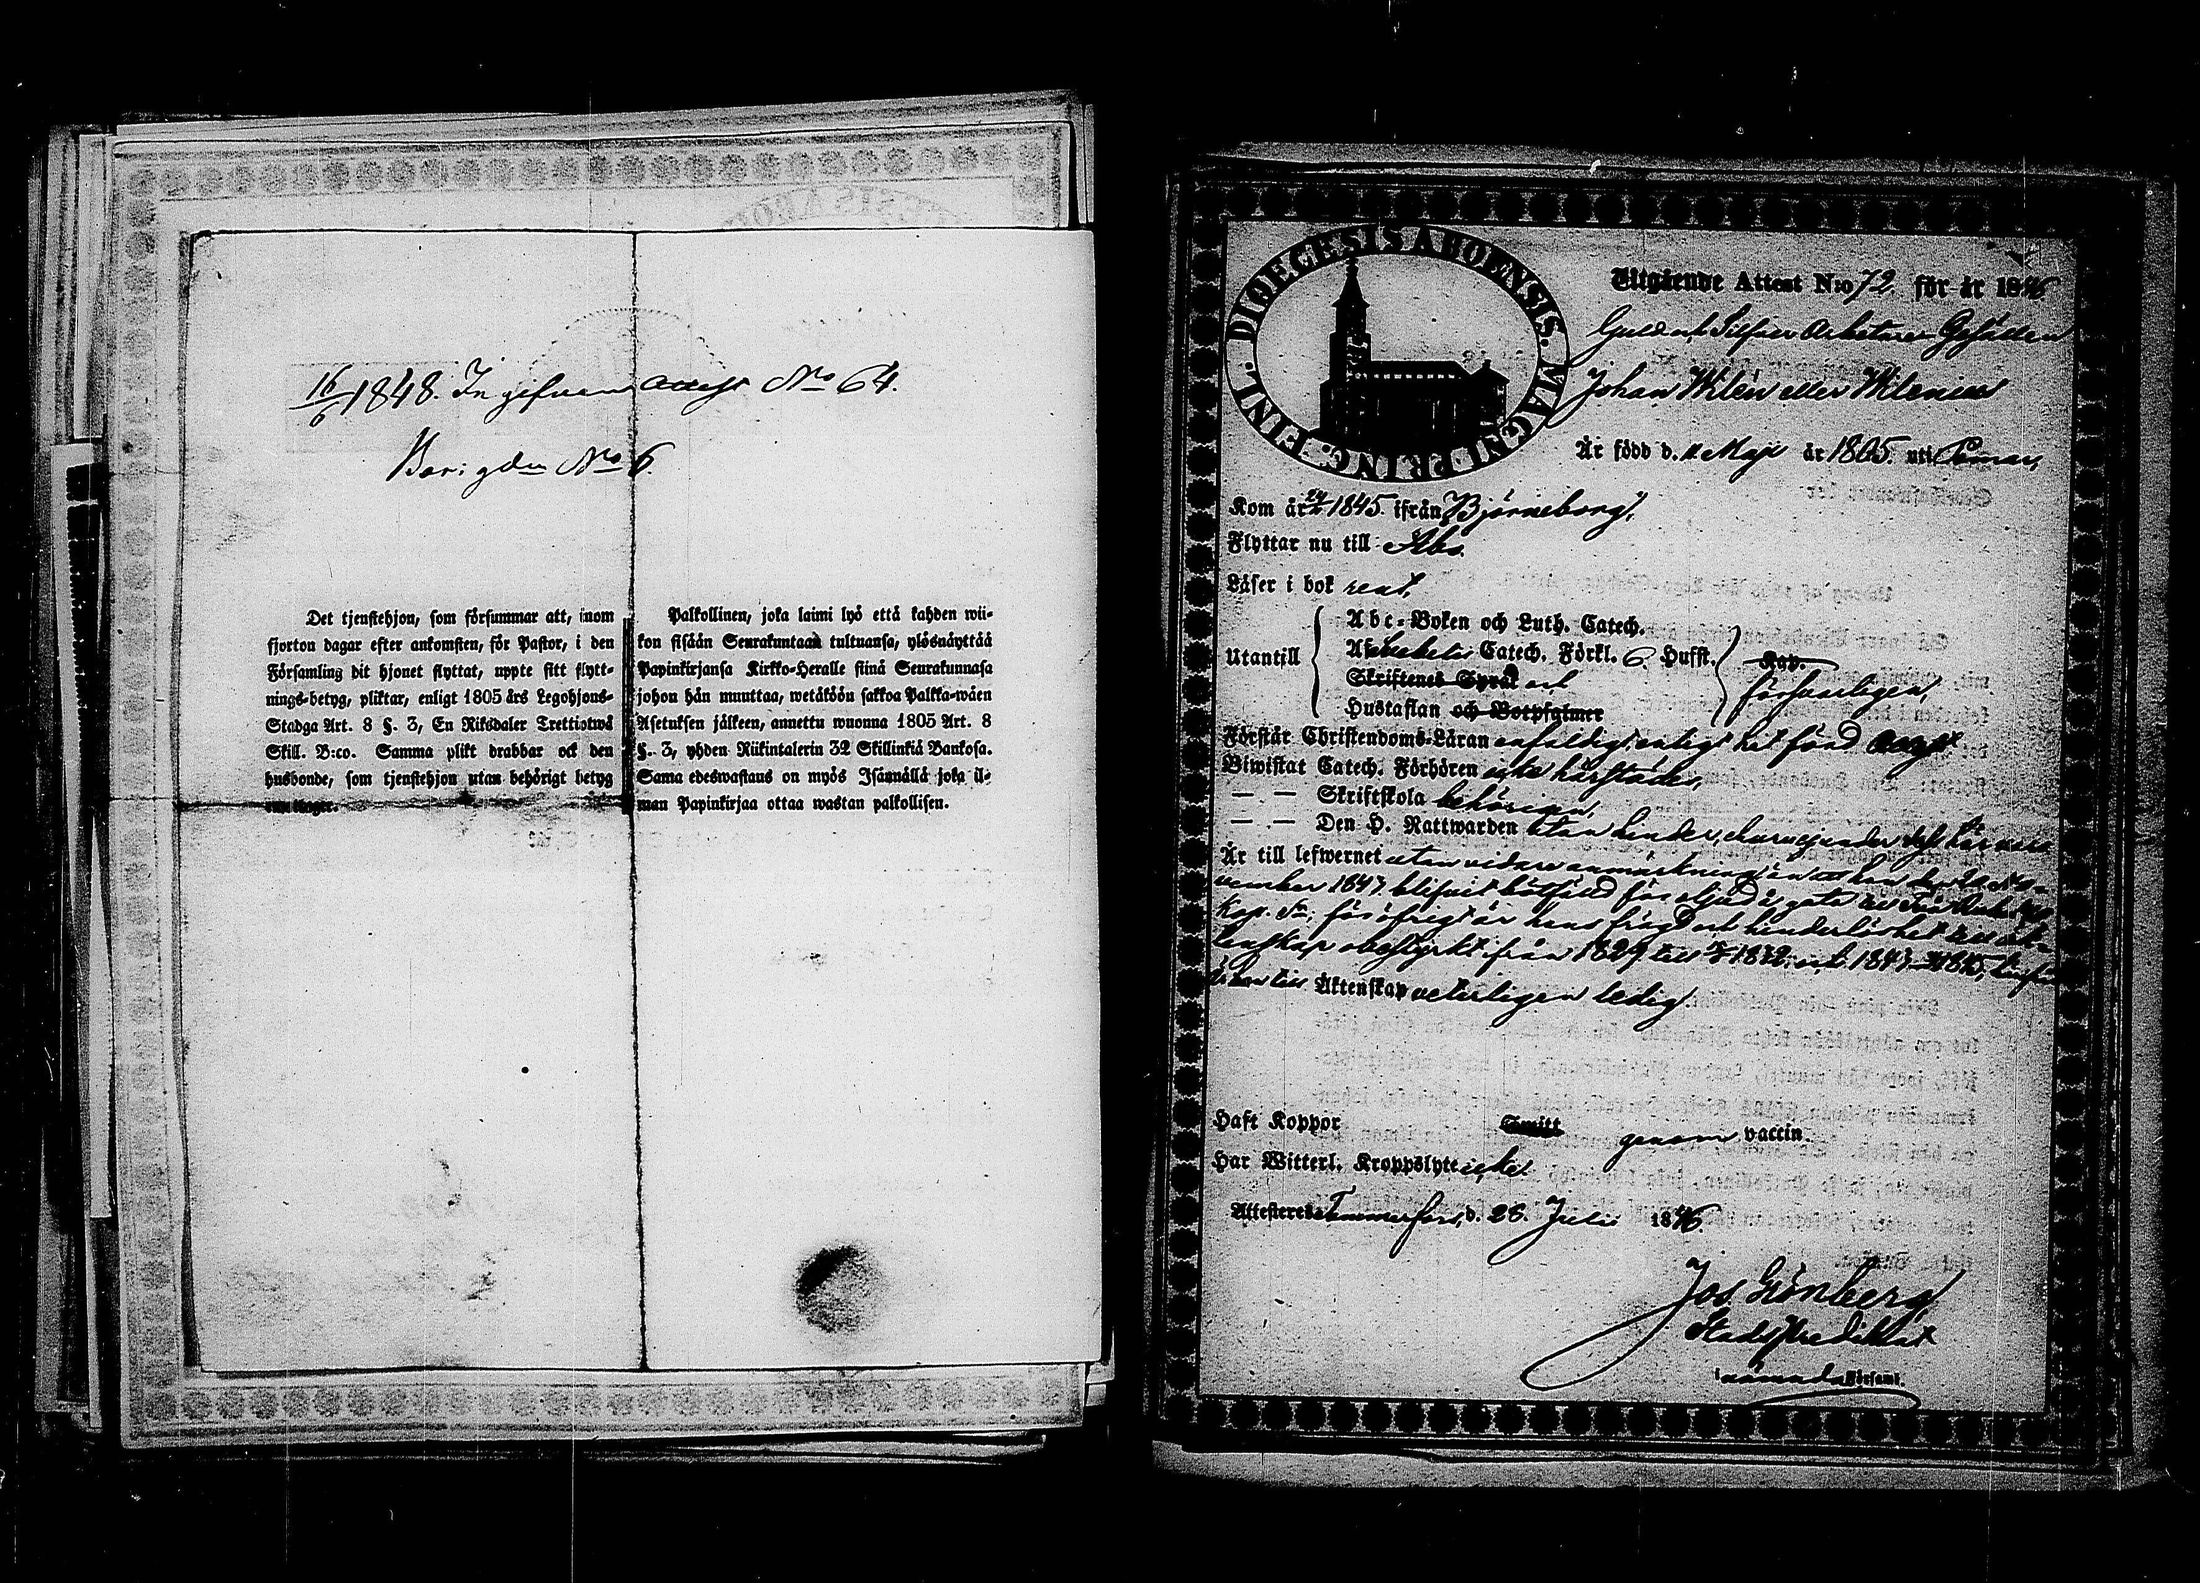 16/6 1848. Ingifven Attest No 64.
Bor i gdn No 6.
Det tjenstehjon, som försummar att, inom
fjorton dagar efter ankomsten, för Pastor, i den
Församling dit hjonet flyttat, uppte sitt flytt-
nings-betyg, pliktar, enligt 1805 års Legohjons-
Stadga Art. 8 §. 3, En Riksdaler Trettiotwå
Skill. B:co. Samma plikt drabbar ock den
husbonde, som tjenstehjon utan behörigt betyg
Palkollinen, joka laimi lyö että kahden wii-
kon sisään Seurakuntaan tultuansa, ylösnäyttää
Papinkirjansa Kirkko-Heralle siinä Seurakunnasa
johon hän muuttaa, wetäköön sakkoa Palkka-wäen
Asetuksen jälkeen, annettu wuonna 1805 Art. 8
§. 3, yhden Riikintalerin 32 Skillinkiä Bankosa.
Sama edeswastaus on myös Isännällä joka il-
man Papinkirjaa ottaa wastan palkollisen.
FINL. DIOECESIS ABOENSIS. MAGNI PRINC.
Utgående Attest N:o 72 för år 1846
Guld och Silfver Arbetare Gesällen
Johan Wilén eller Wilenius
Är född d. 11 Maji år 1805. uti Pemar,
Kom år 1845. ifrån Björneborg,
Flyttar nu till Åbo.
Läser i bok rent,
Utantill
Abc-Boken och Luth. Catech.
Catech. Förkl. 6. Hufst.
Skriftenes Språk och
Hustaflan och Botpsalmer
Kap.
försvarligen,
Förstår Christendoms-Läran enfaldigt, enligt det förd
Biwistat Catech. Förhören icke härstädes,
— — Skriftskola behörigen,
— — Den H. Nattwarden utan hinder,
Är till lefwernet utan vidare anmärkning än att han den
vember 1843 blifvit bötfälld för oljud å gata
Kap. för öfrigt är hans frägd och hinderlöshet till äk-
tenskap obestyrkt ifrån 1829 till 1842 och 1843
Äktenskap veterligen ledig.
Haft Koppor Smitt genom vaccin.
Har Witterl. Kroppslyte icke.
Attesteres Tammerfors, d. 28. Julii 1846.
Jos Grönberg
Stadspredikant
i nämnda Församl.